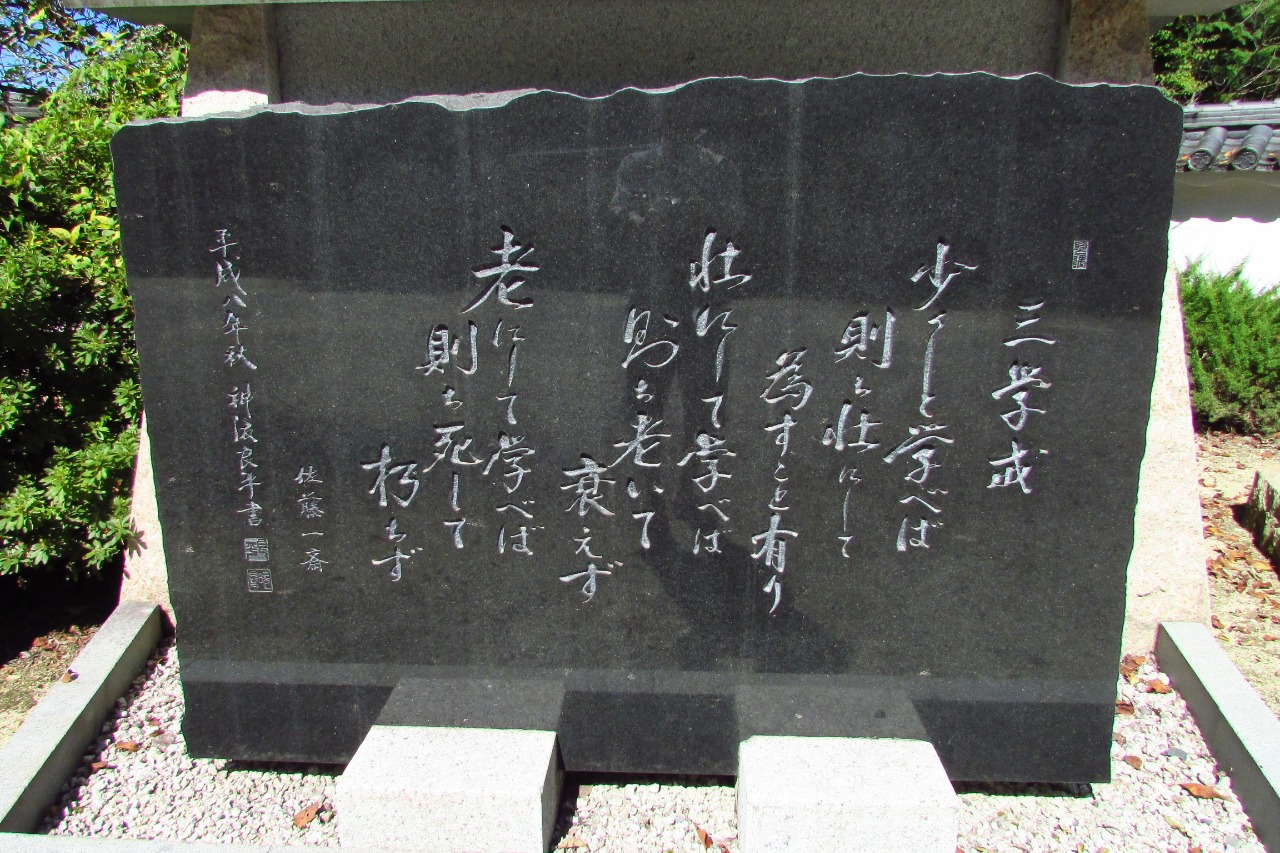 三学戒
少くして学べば
則ち壮にして
為すこと有り
壮にして学べは
則ち老いて
衰えず
老にして学べば
則ち死して
朽ちず
佐藤一斎
平成八年秋 神渡良平書